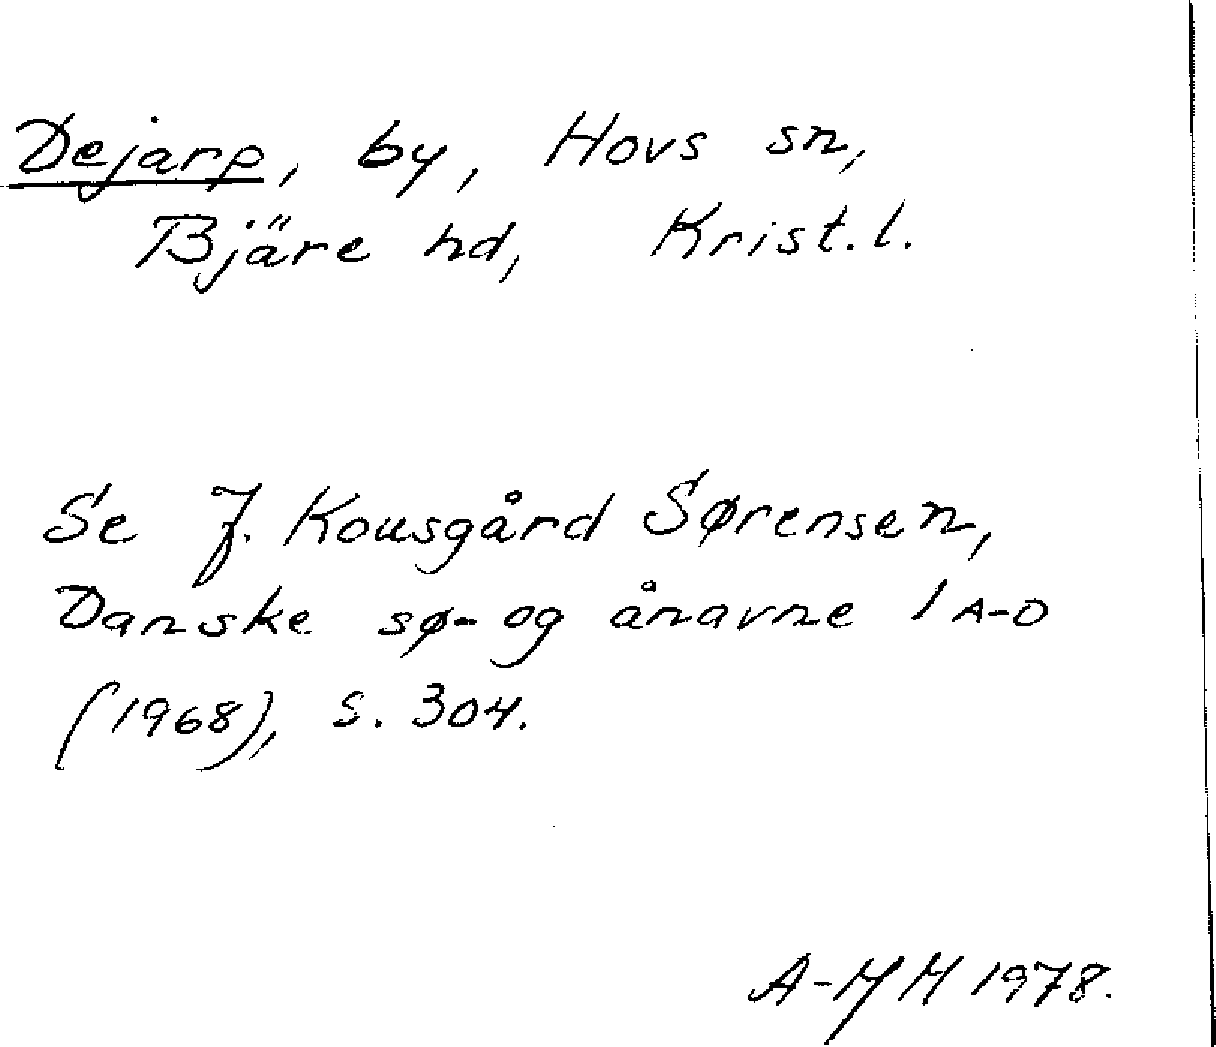 Dejarp, by, Hovs sn,
Bjäre hd, Krist. l.
Se J. Kousgård Sørensen,
Danske sø- og ånavne 1 A-D
(1968), s. 304.
1978.